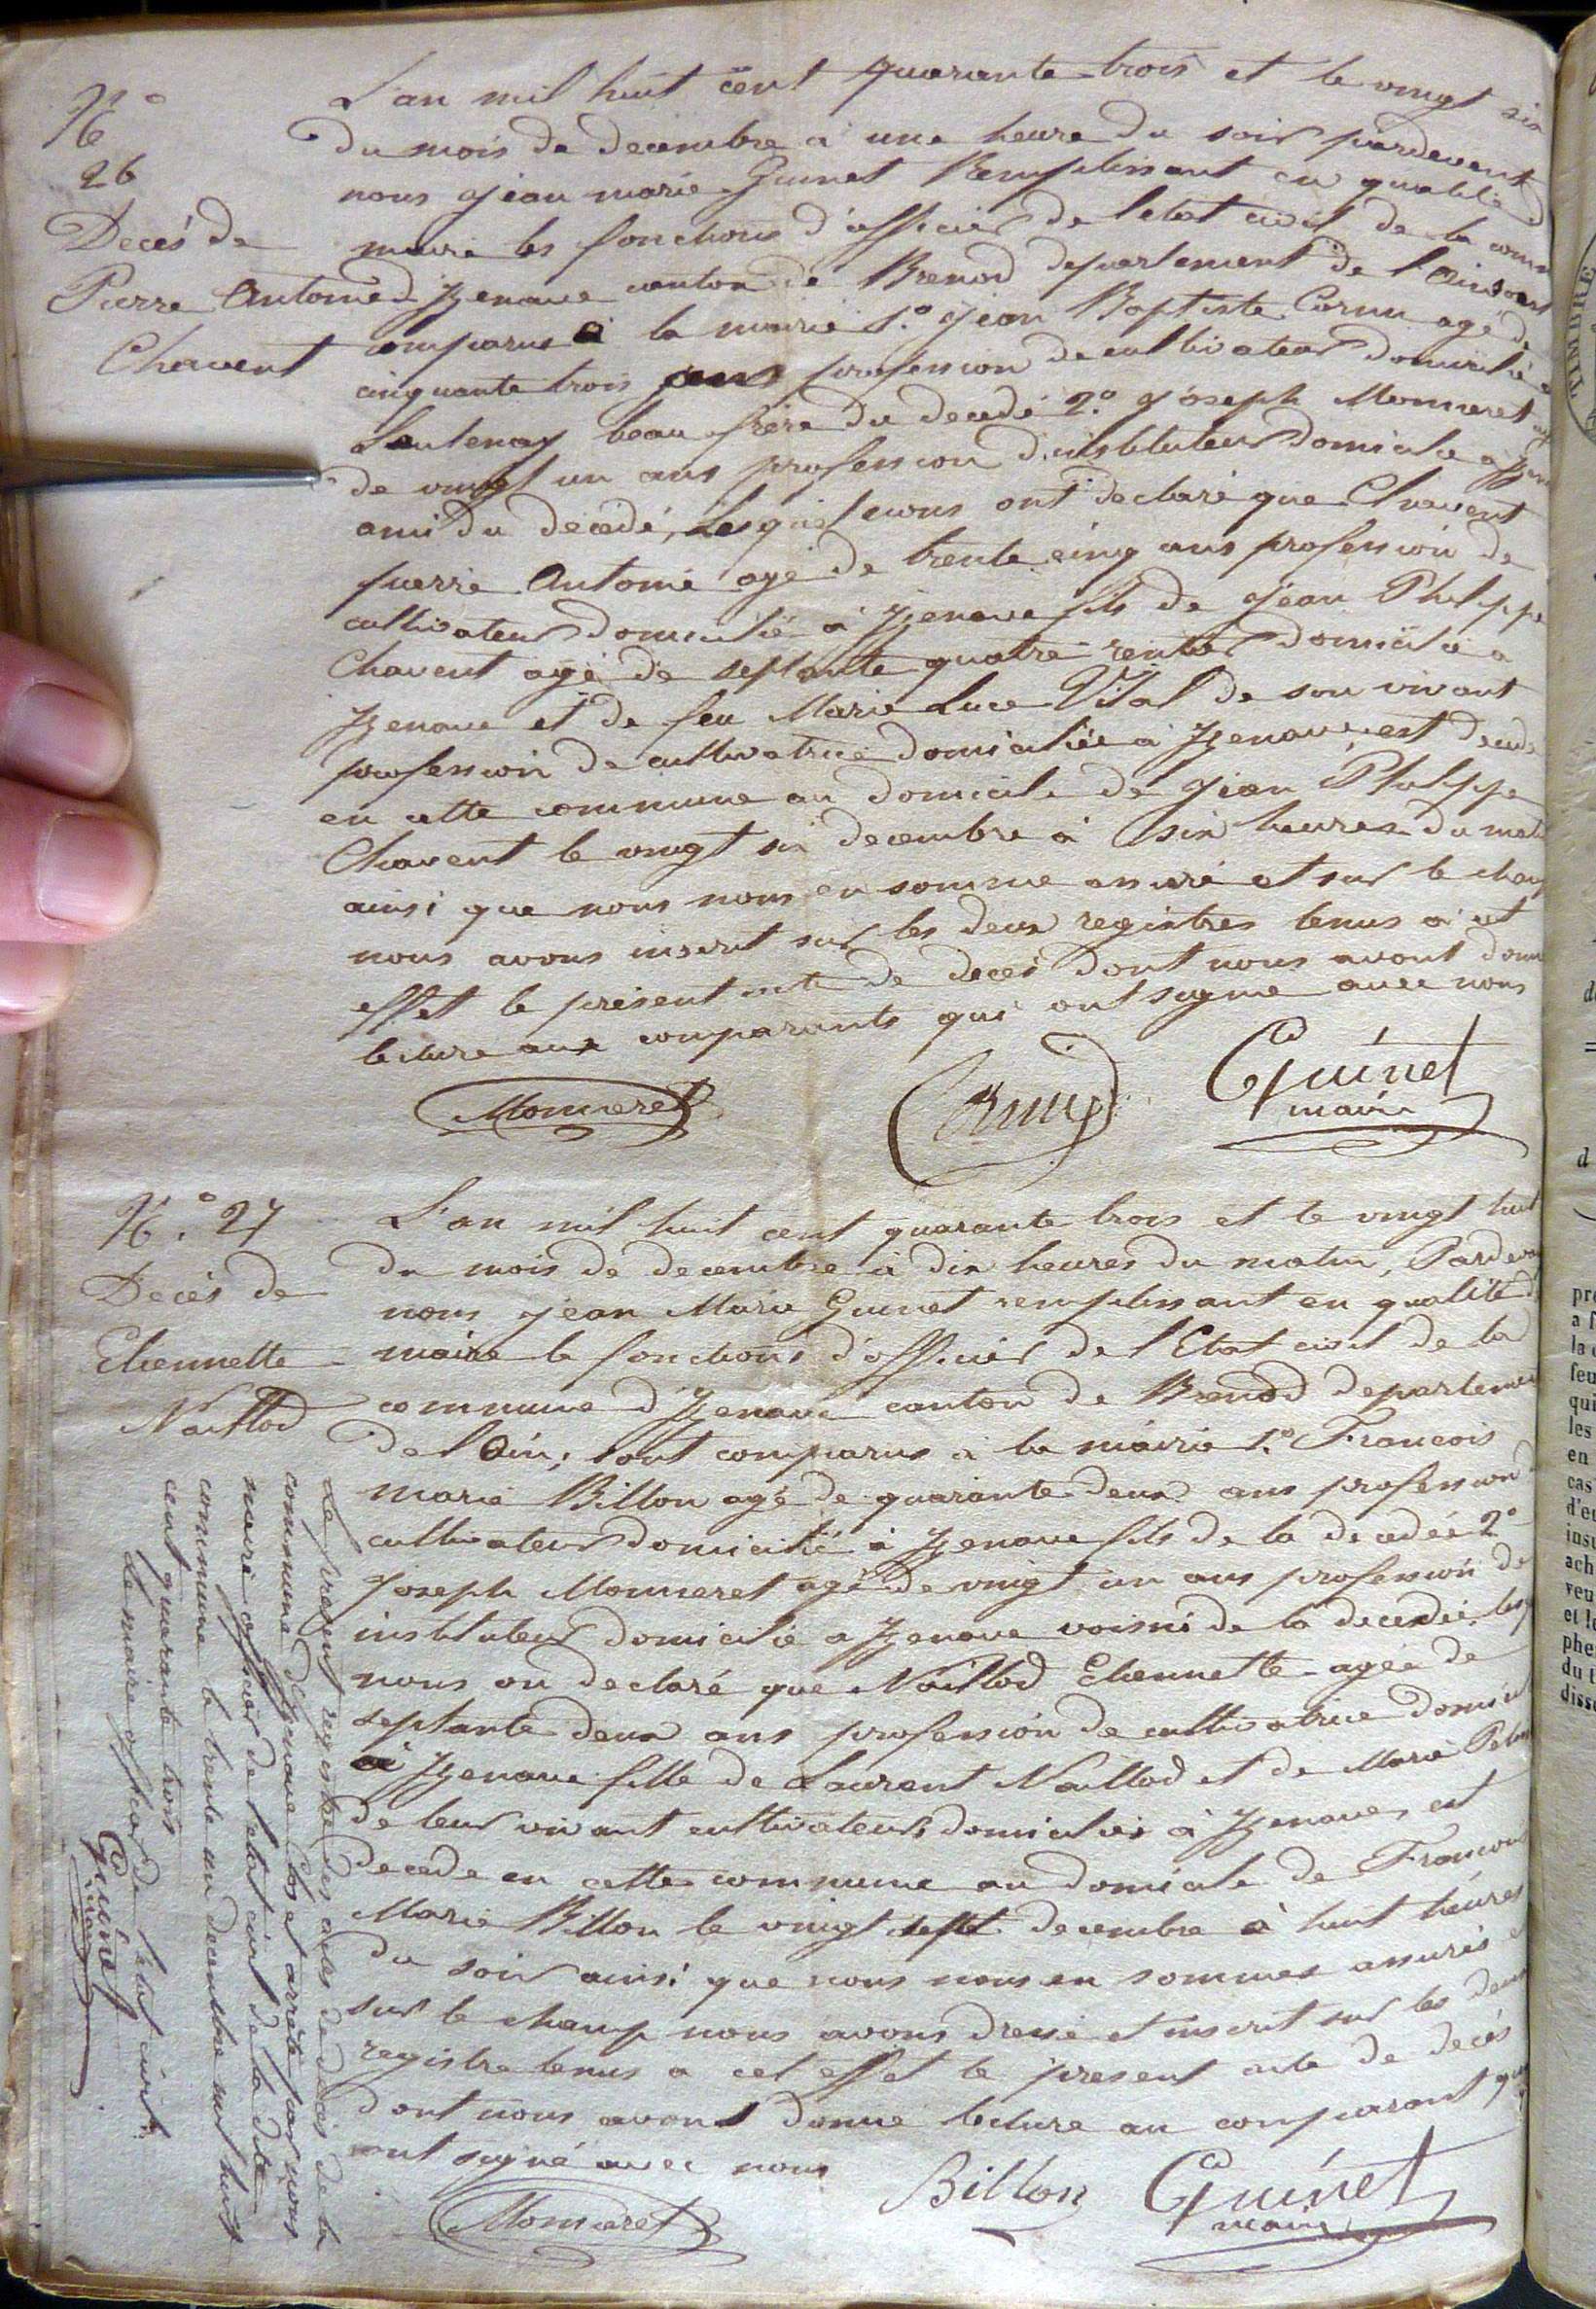 N°
26
Decés de
Pierre Antoine
Chavent
L'an mil huit cent quarante trois et le vingt six
du mois de decembre à une heure du soir pardevant
nous jean marie Guinet Remplissant en qualité d
maire les fonctions d'officier de l'etat civil de la comm
d'Izenave canton de Brenod departement de l'Ain sont
comparus a la mairie 1.° jean Baptiste Cornu agé de
cinquante trois ans profession de cultivateur domicilié a
Lentenay beau frère du decedé 2.° joseph Monneret agé
de vingt un ans profession d'instituteur domicilié a Izen
ami du décédé, Lesquel nous ont declaré que Chavent
pierre Antoine agé de trente cinq ans profession de
cultivateur domicilié à Izenave fils de jean Philippe
Chavent agé de septante quatre rentier domicilié a
Izenave et de feu Marie Luce Vital de son vivant
profession de cultivatrice domiciliée à Izenave est decedé
en cette commune au domicile de jean Philippe
Chavent le vingt six decembre à six heures du mati
ainsi que nous nous en somme assuré et sur le champ
nous avons inscrit sur les deux registres tenus a cet
effet le présent acte de decés dont nous avont donn
lecture aux comparants qui ont signe avec nous
Monneret Cornu Guinet
maire
N.° 27
Decés de
Etiennette
Naillod
L'an mil huit cent quarante trois et le vingt huit
du mois de decembre à dix heures du matin, Pardevan
nous jean Marie Guinet remplissant en qualité d
maire le fonctions d'officier de l'Etat civil de la
commune d'Izenave canton de Brenod departemen
de l'Ain; sont comparus à la mairie 1.° Francois
marie Billon agé de quarante deux ans profession d
cultivateur domicilié à Izenave fils de la decedée 2°
Joseph Monneret agé de vingt un ans profession de
instituteur domicilié a Izenave voisin de la decedée lesq
nous on declaré que Naillod Etiennette agée de
septante deux ans profession de cultivatrice domicil
a Izenave fille de Laurent Naillod et de Marie
de leur vivant cultivateurs domiciliés à Izenave, est
decede en cette commune au domicile de Francois
Marie Billon le vingt sept decembre à huit heures
du soir ainsi que nous nous en sommes assurés e
sur le champ nous avons dressé et inscrit sur les deux
registre tenus a cet effet le present acte de decés
dont nous avont donne lecture au comparant qui
ont signé avec nous
Monneret Billon Guinet
maire
Le present registre des actes de décés de la
commune d'Izenave clos et arrêté par nous
maire officier de l'etat civil de la dite
commune le trente un decembre mil huit
cent quarante trois
Le maire officier de l'etat civil
Guinet
maire
TIMBRE